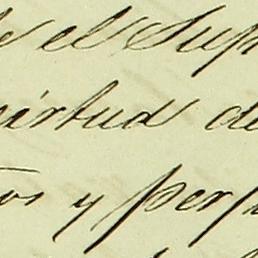 e el Sup
virtud de
os y perj